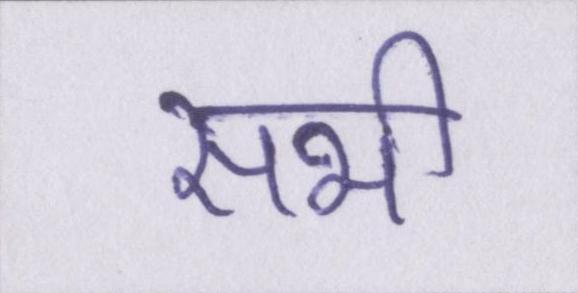 सभी